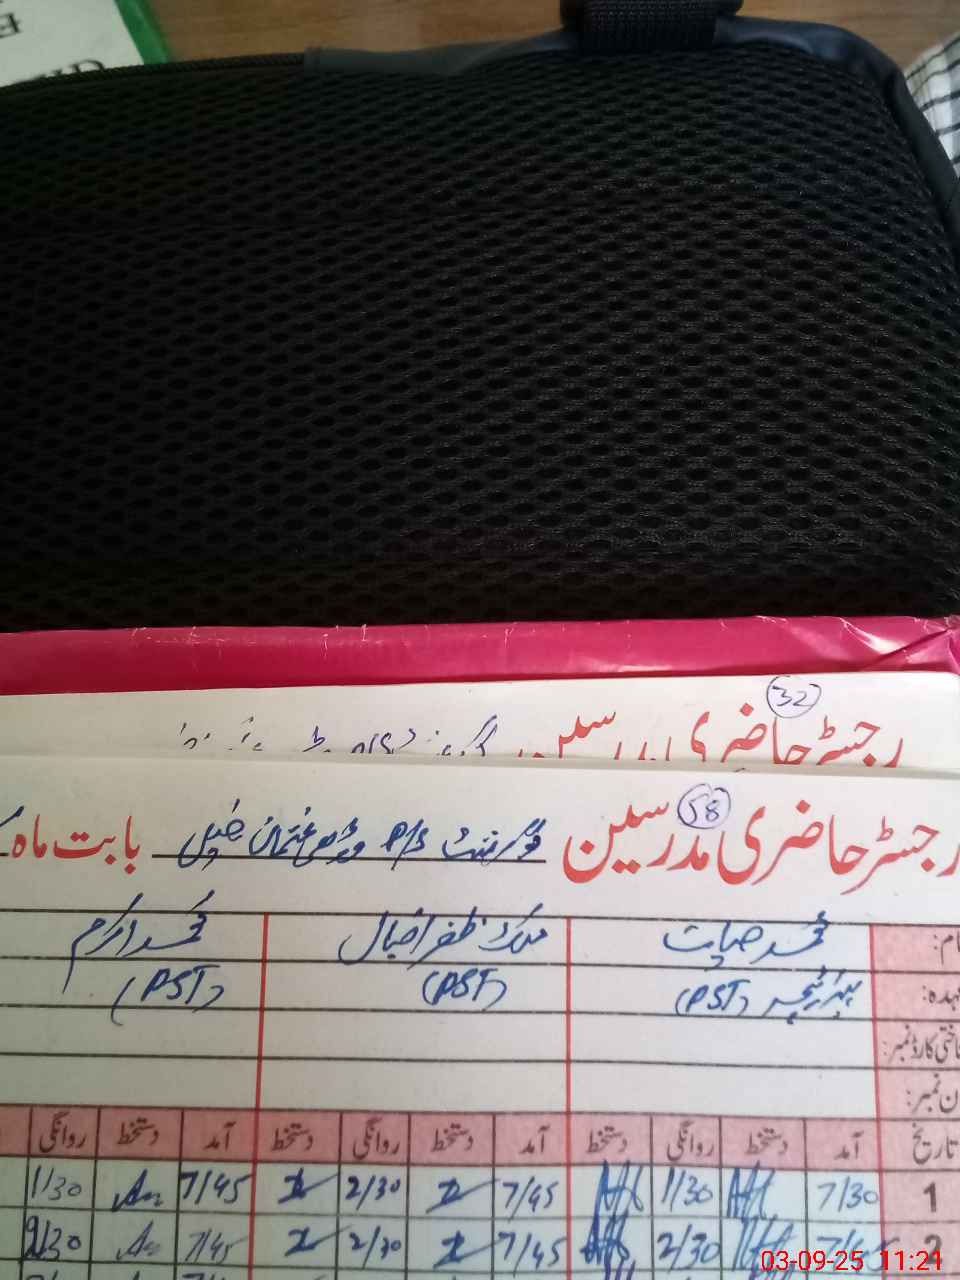 32
رجسٹر حاضری مدرسین
58
رجسٹر حاضری مدرسین گورنمنٹ P/S عثمان خیل بابت ماہ
نام: محمد حیات ملک ظفر اقبال محمد اکرم
عہدہ: ہیڈ ٹیچر (PST) (PST) (PST)
شناختی کارڈ نمبر:
ن نمبر:
تاریخ آمد دستخط روانگی دستخط آمد دستخط روانگی دستخط آمد دستخط روانگی
1 7/30 1/30 7/45 2/30 7/45 1/30
2 7/45 2/30 7/45 2/30 7/45 2/30
03-09-25 11:21